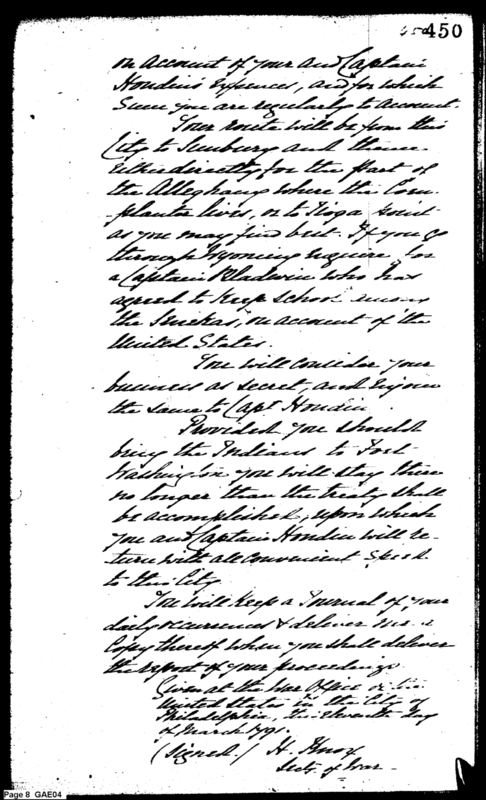 450
on account of your and Captain
Houdin's Expences, and for which
Sum you are regularly to account.
Your route will be from this
City to Sunbury and thence
either directly for the part of
the Alleghany where the Corn-
-planter lives, or to Tioga point
as you may find best. If you go
through Wyoming enquire for
a Captain Bladwin who has
agreed to keep school among
the Senekas, on account of the
United States.
You will consider your
business as secret, and enjoin
the same to Capt Houdin
Provided you should
bring the Indians to Fort
Washington you will stay there
no longer than the treaty shall
be accomplished, upon which
you and Captain Houdin will re-
turn with all convenient speed
to this City
You will keep a Journal of your
daily occurrences & deliver me a
Copy thereof when you shall deliver
the report of your proceedings.
Given at the War Office of the
United States in the City of
Philadelphia, this eleventh day
of March 1791.
(signed.) H. Knox
Secty. of War
Page 8 GAE04